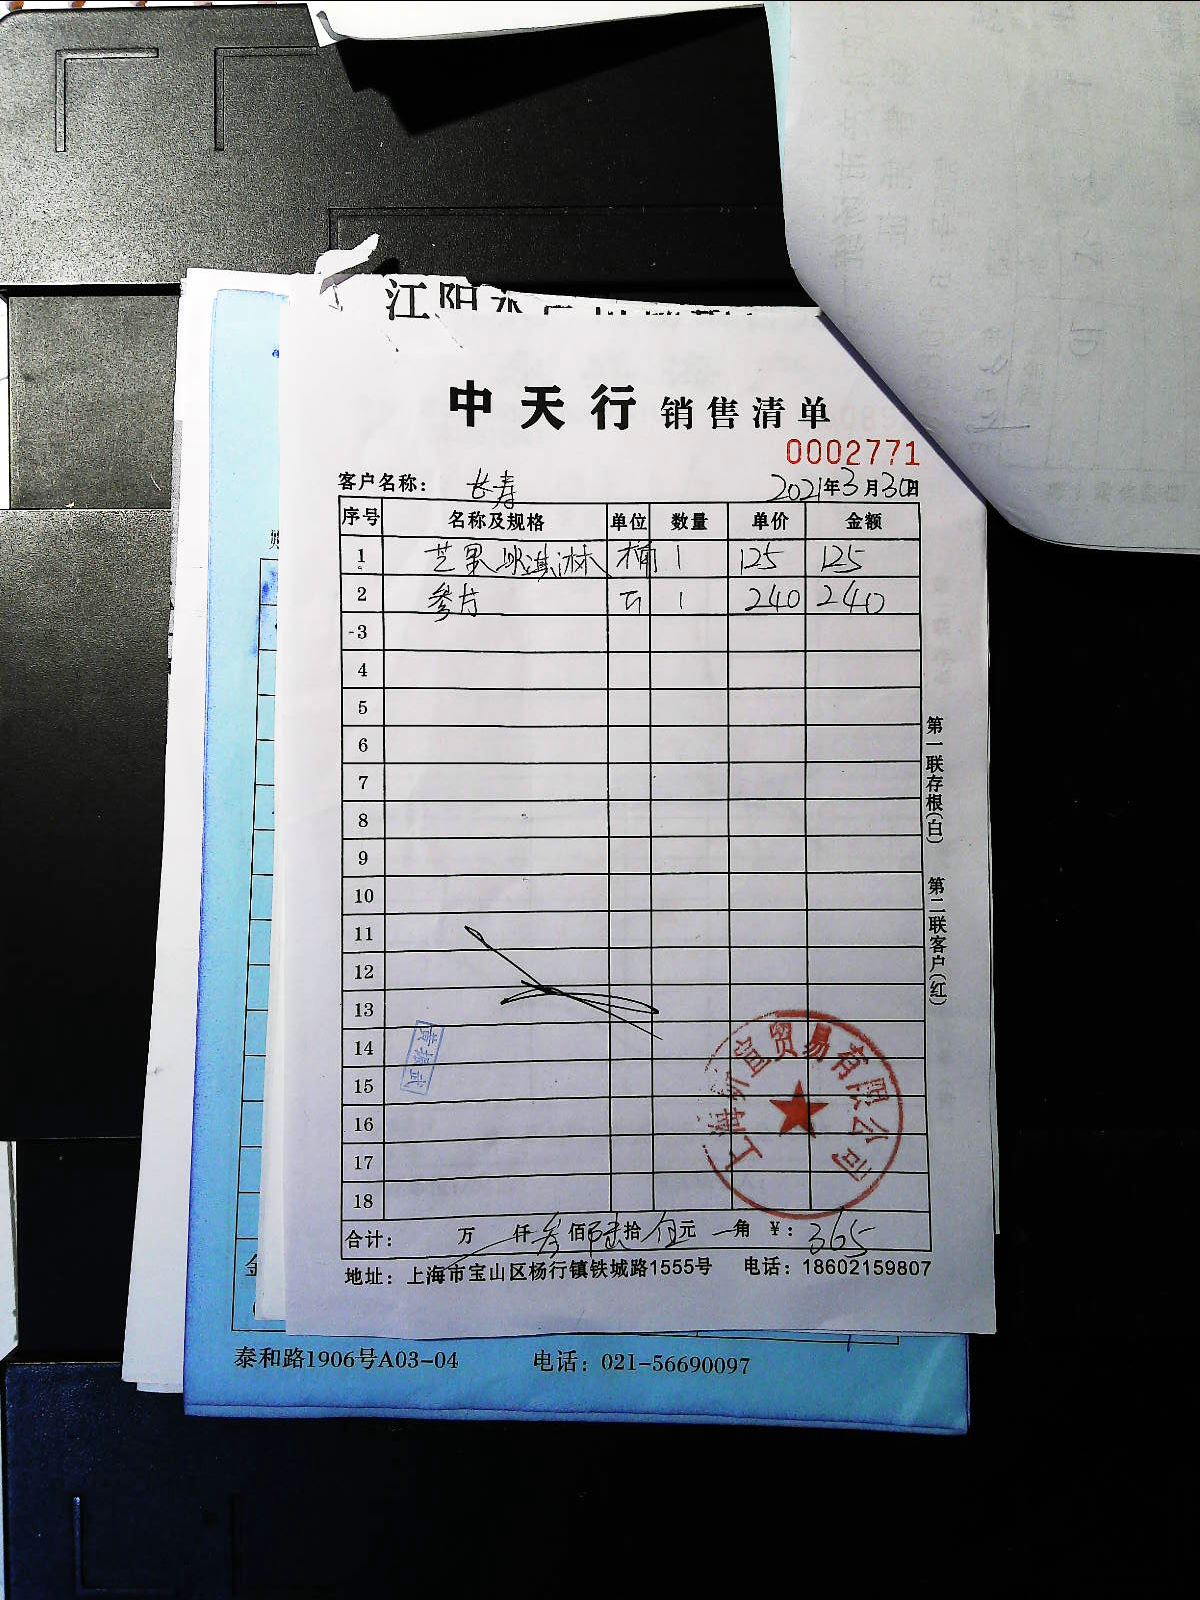 江阳水
中天行 销售清单
0002771
客户名称： 长寿 2021年3月30日
序号 名称及规格 单位 数量 单价 金额
1 芝果冰淇淋 桶 1 125 125
2 参片 1 240 240
-3
4
5
6
7
8
9
10
11
12
13
14
15
16
17
18
黄振武
上海 宣贸易有限公司
合计： 万 仟 叁佰陆拾伍元 角 ¥： 365
地址：上海市宝山区杨行镇铁城路1555号 电话：18602159807
第一联存根(白) 第二联客户(红)
金
泰和路1906号A03-04 电话：021-56690097